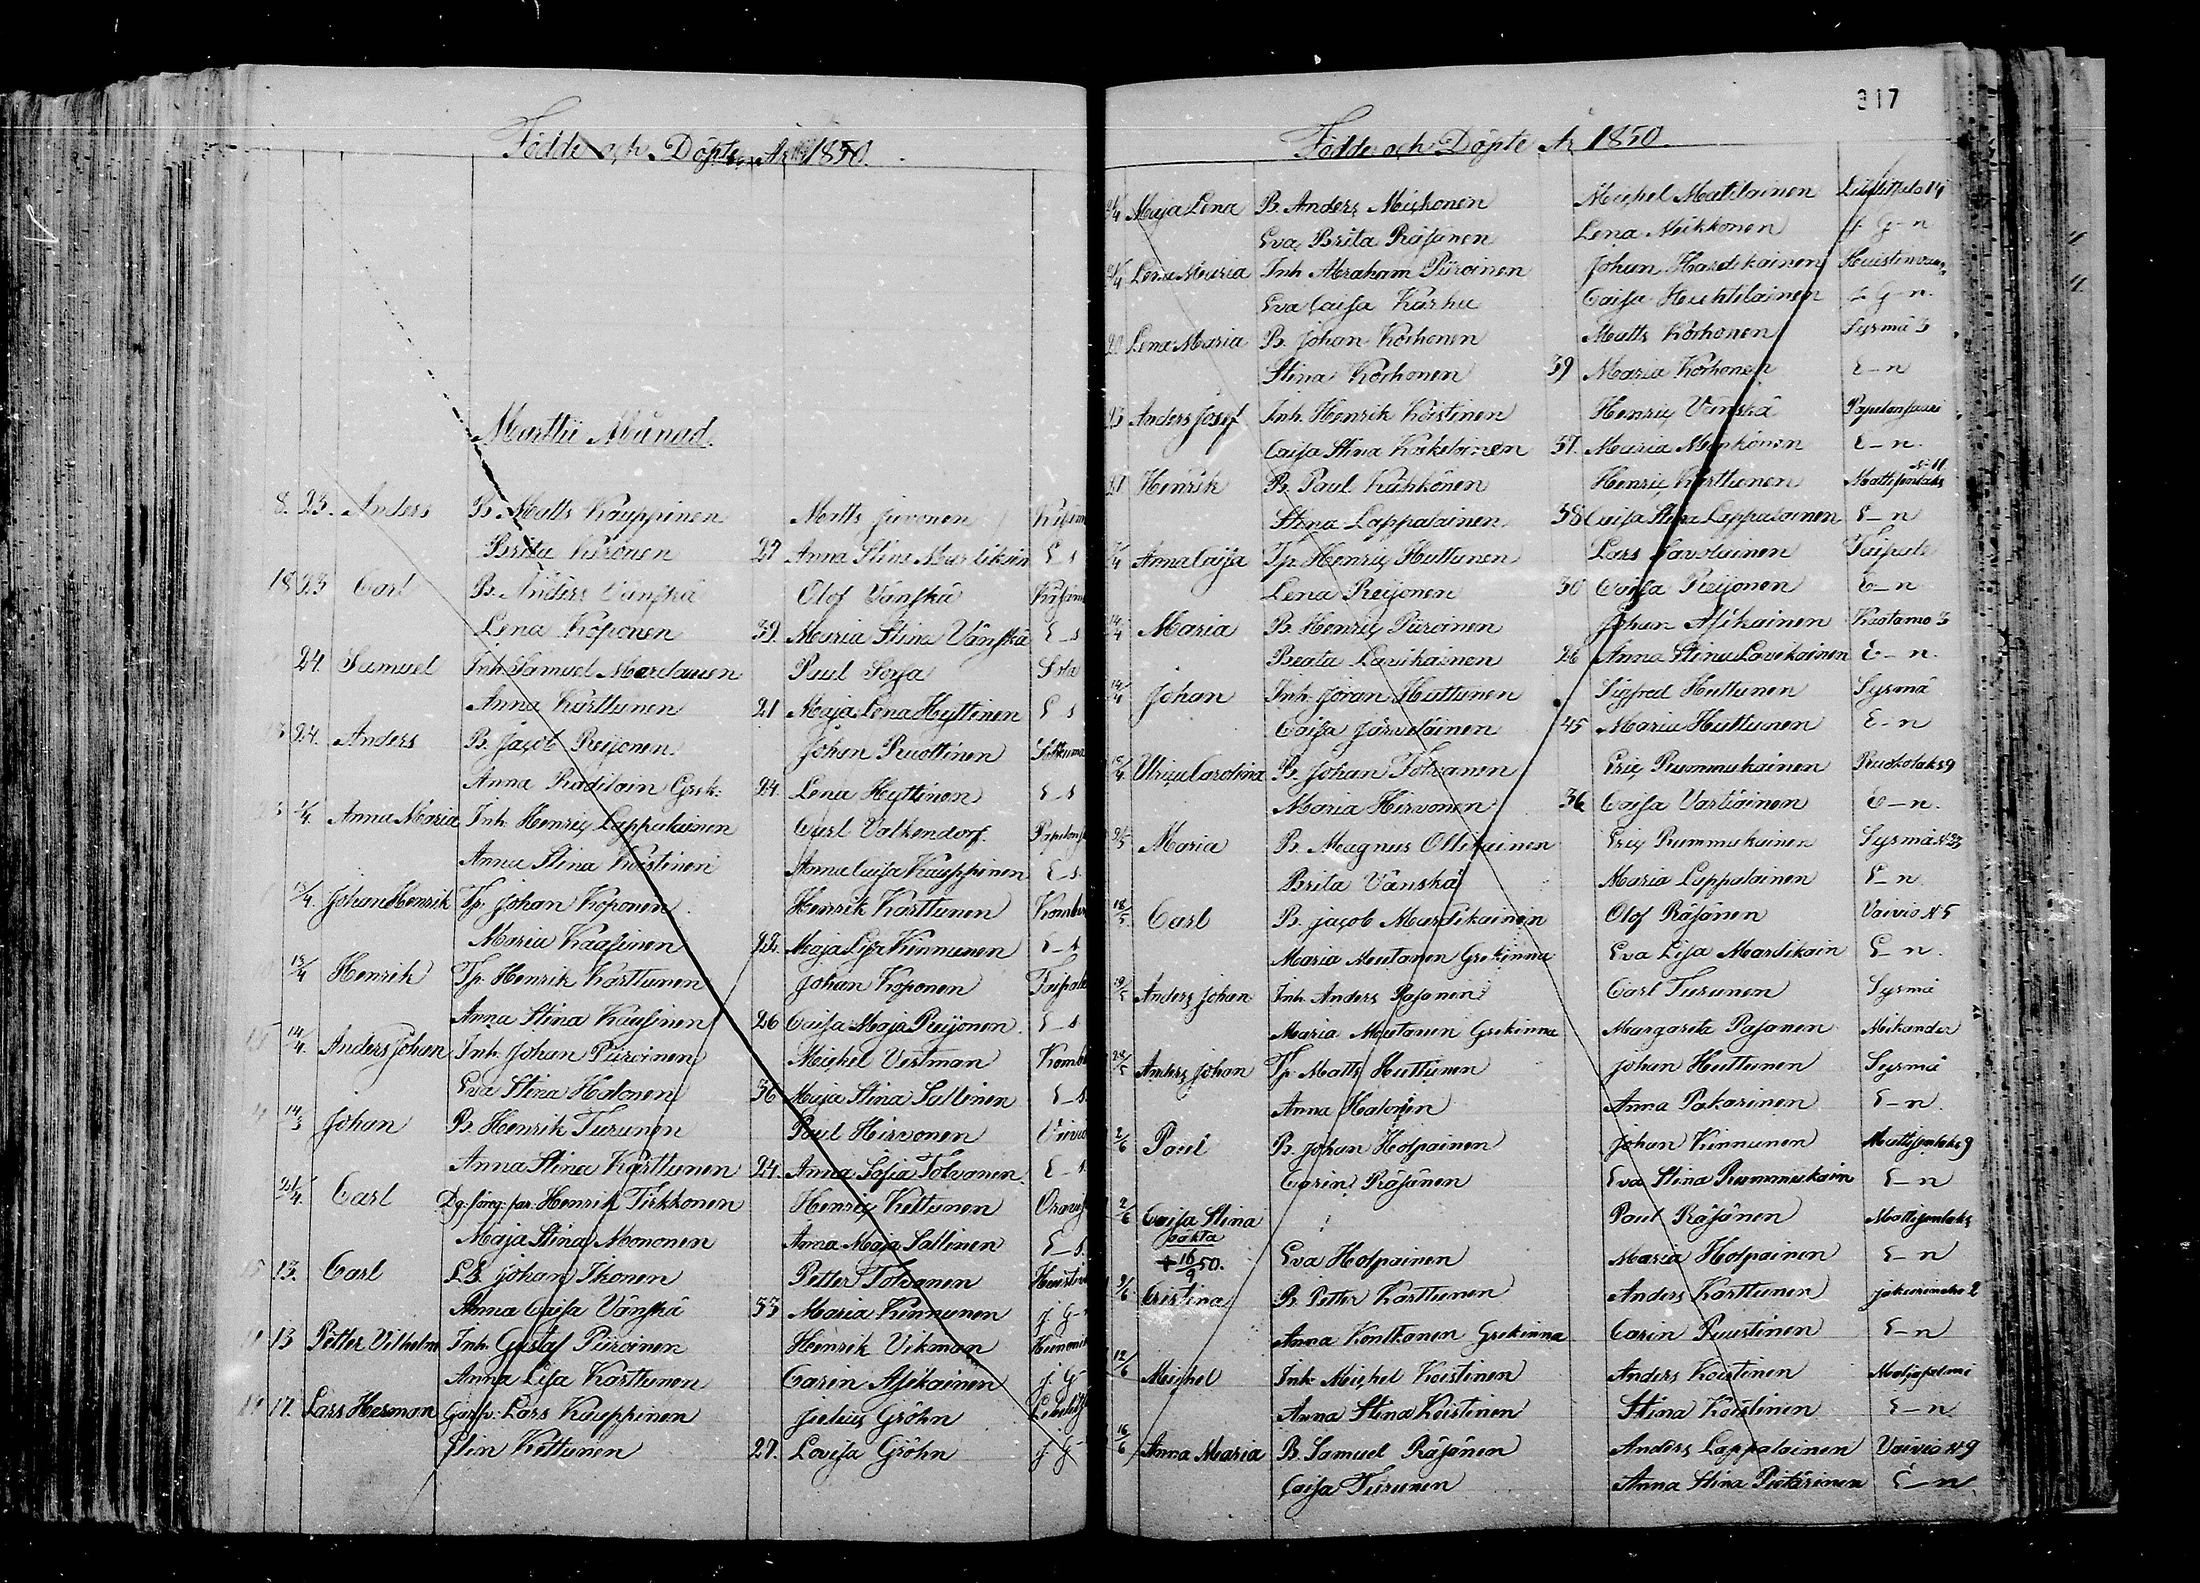 Födde och Döpte År 1850.
Martii Månad.
8. 23. Anders B. Matts Kauppinen Matts Juvonen
Brita Hirvonen 27 Anna Stina Mardikain E_s
18 23 Carl B. Anders Vänskä Olof Vänskä
Lena Koponen 39. Maria Stina Vänskä E_s
24. Samuel Inh. Samuel Paul Soya
Anna Karttunen 21 Maja Lena Hyttinen E_s
24. Anders B. Jacob Reijonen Johan Ruottinen
Anna Radilain Grek: 24. Lena Hyttinen E_s
1/4. Anna Maria Inh. Henric Lappalainen Carl Valkendorf.
Anna Stina Koistinen Anna Caisa Kauppinen E_s.
13/4. Johan Henrik Tp. Johan Koponen Henrik Karttunen
Maria Kaasinen 22. Maja Lisa Kinnunen E_s
13/4 Henrik Tp. Henrik Karttunen Johan Koponen
Anna Stina Kaasinen 26 Caisa Maja Reijonen E_s
14/4. Anders Johan Inh. Johan Piiroinen Michel Vestman
Eva Stina Halonen 36 Maja Stina Sallinen E_s
14/3 Johan B. Henrik Turunen Paul Hirvonen
Anna Stina Karttunen 24. Anna Sofia Tolvanen E_s
21/4. Carl Henrik Tirkkonen Henric Kettunen
Maja Stina Mononen Anna Maja Sallinen E_s.
13. Carl LB. Johan Ikonen Petter Tolvanen
Anna Caisa Vänskä 33 Maria Kinnunen J. G
13 Petter Vilhelm Inh. Gustaf Piiroinen Henrik Vikman
Anna Lisa Karttunen Carin Asikainen J. G
17. Lars Herman Lars Kauppinen Julius Gröhn
Elin Kettunen 27. Lovisa Gröhn J. G
317
Födde och Döpte År 1850.
Maja Lena B. Anders Michonen Michel Matilainen
Eva Brita Räsänen Lena Mikkonen J. G_n
Lena Maria Inh. Abraham Piiroinen Johan Mardikainen
Eva Caisa Karhu Caisa Huhtilainen J. G_n.
20 Lena Maria B. Johan Korhonen Matts Korhonen Sysmä 3
Stina Korhonen 39 Maria Korhonen E_n
23 Anders Josef Inh. Henrik Koistinen Henric Vänskä
Caisa Stina 37. Maria E_n.
21 Henrik B. Paul Kähkönen Henric Karttunen N. 11. Mattisenlaks
Stina Lappalainen 38 Caisa Stina Lappalainen E_n
Anna Caisa Tp. Henric Huttunen Lars Savolainen Taipale
Lena Reijonen 30 Caisa Reijonen E_n
14/4 Maria B. Henric Piiroinen Johan Asikainen Kuotamo 3
Beata Lavikainen 26 Anna Stina Lavikainen E_n.
14/4 Johan Inh. Jöran Huttunen Sigfred Huttunen Sysmä
Caisa Järveläinen 45 Maria Huttunen E_n
Ulrica Carolina B. Johan Tolvanen Eric Rummukainen Ruokolaks 9
Maria Hirvonen 36 Caisa Vartiainen E_n.
Maria B. Magnus Ollikainen Eric Rummukainen
Brita Vänskä Maria Lappalainen E_n
18/5 Carl B. Jacob Mardikainen Olof Räsänen Vaivio N 5
Maria Moutanen Grekinna Eva Lisa Mardikain E_n.
19/5 Anders Johan Inh. Anders Pasanen Carl Turunen Sysmä
Maria Moutanen Grekinna Margareta Pasanen
Anders Johan Tp. Matts Huttunen Johan Huttunen Sysmä
Anna Halonen Anna Pakarinen E_n.
2/6 Paul B. Johan Holpainen Johan Kinnunen Mattisenlaks 9
Carin Räsänen Eva Stina Rummukain E_n
2/6 Caisa Stina Paul Räsänen Mattisenlaks
oäkta
+ 16/9 50. Eva Holpainen Maria Holpainen E_n
9/6 Cristina B. Petter Karttunen Anders Karttunen
Anna Konttanen Grekinna Carin Puustinen E_n
12/6 Michel Inh. Michel Koistinen Anders Koistinen
Anna Stina Koistinen Stina Koistinen E_n
16/6 Anna Maria B. Samuel Räsänen Anders Lappalainen Vaivio N 9
Caisa Turunen Anna Stina Pietarinen E_n